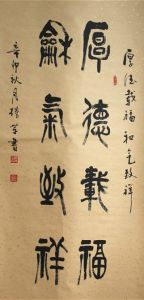 厚德載福和气致祥
厚德載福
龢氣致祥
辛卯秋月
書